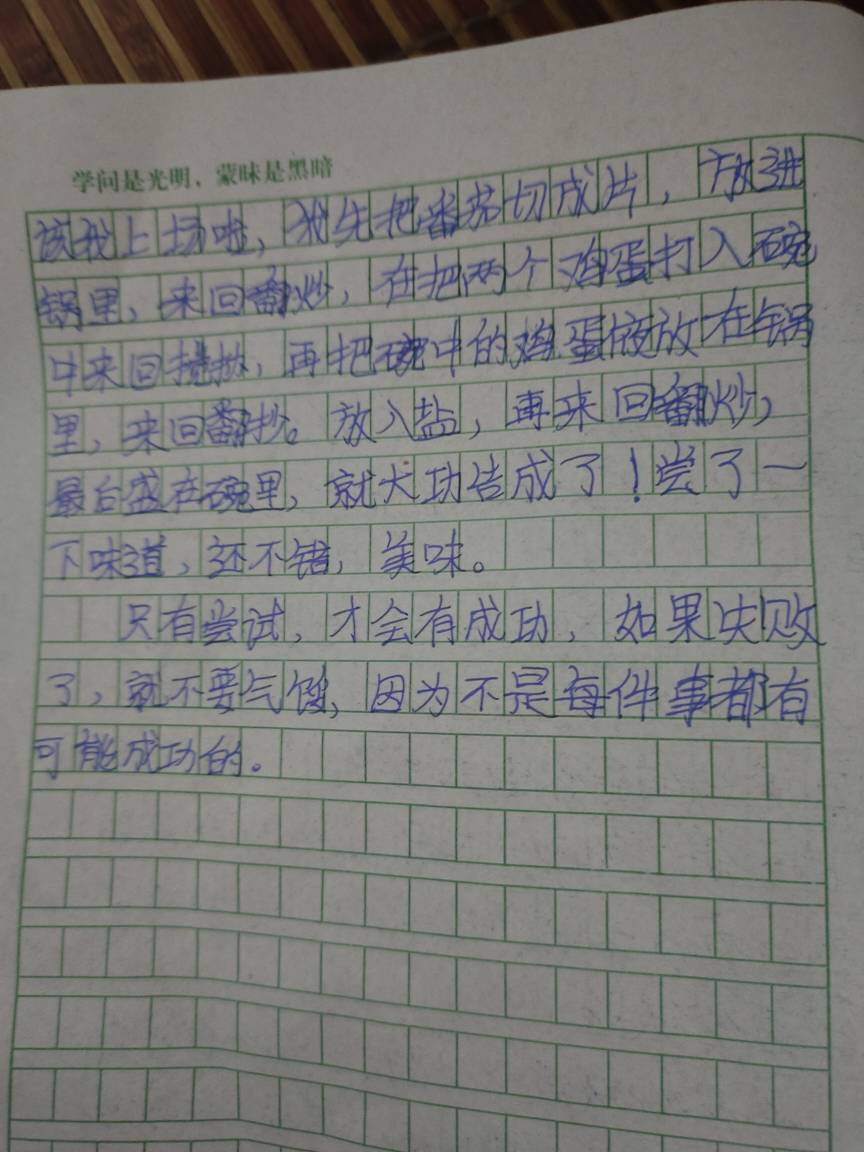 学问是光明，蒙昧是黑暗
该我上场啦，我先把番茄切成片，放进
锅里，来回翻炒，在把两个鸡蛋打入碗
中来回搅拌，再把碗中的鸡蛋液放在锅
里，来回翻抄。放入盐，再来回翻炒，
最后盛在碗里，就大功告成了！尝了一
下味道，还不错，美味。
只有尝试，才会有成功，如果失败
了，就不要气馁，因为不是每件事都有
可能成功的。